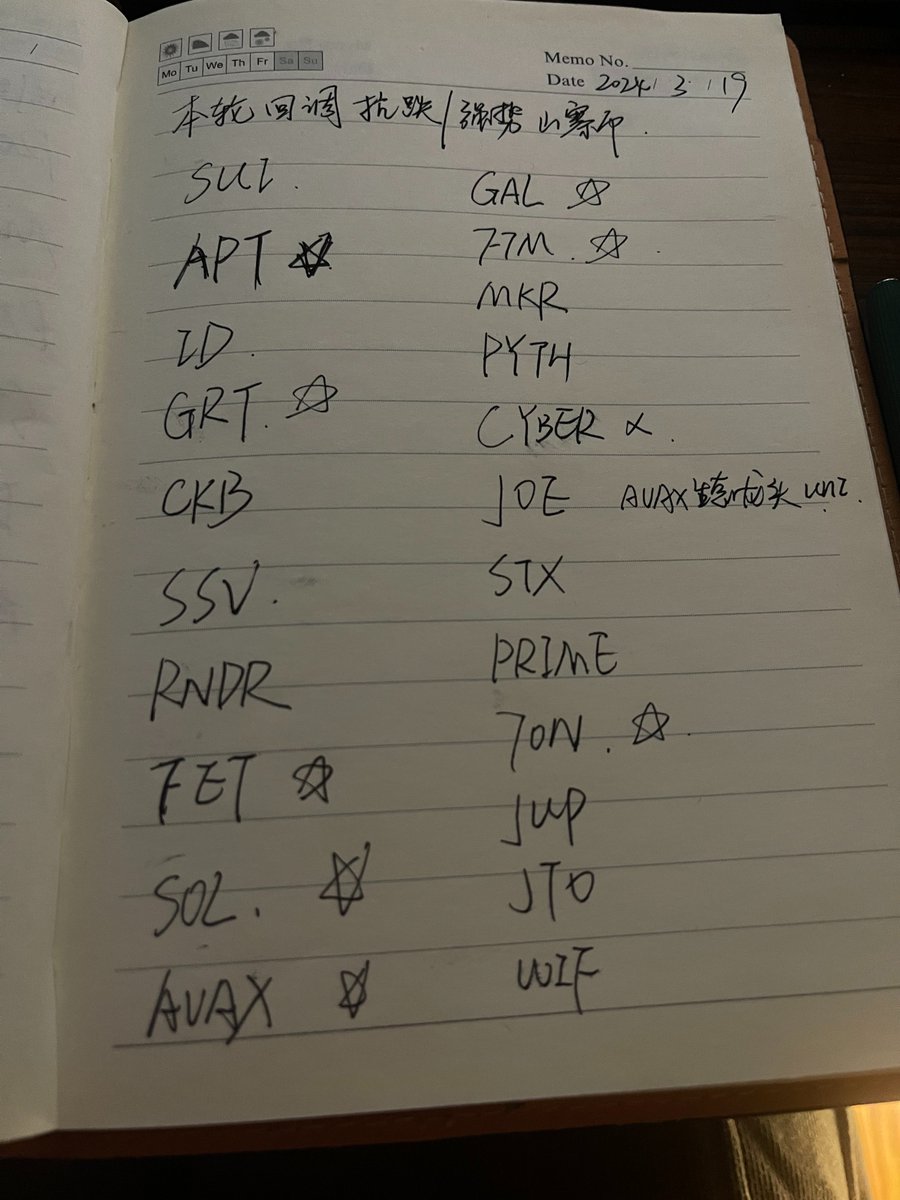 Mo Tu We Th Fr Sa Su
Memo No.
Date 2024/3/19
本轮回调抗跌/强势山寨币.
SUI.
APT ☆
ID.
GRT. ☆
CKB
SSV.
RNDR
FET ☆
SOL. ☆
AVAX ☆
GAL ☆
FTM. ☆.
MKR
PYTH
CYBER ×.
JOE AVAX生态龙头 UNI.
STX
PRIME
TON. ☆.
JUP
JTO
WIF